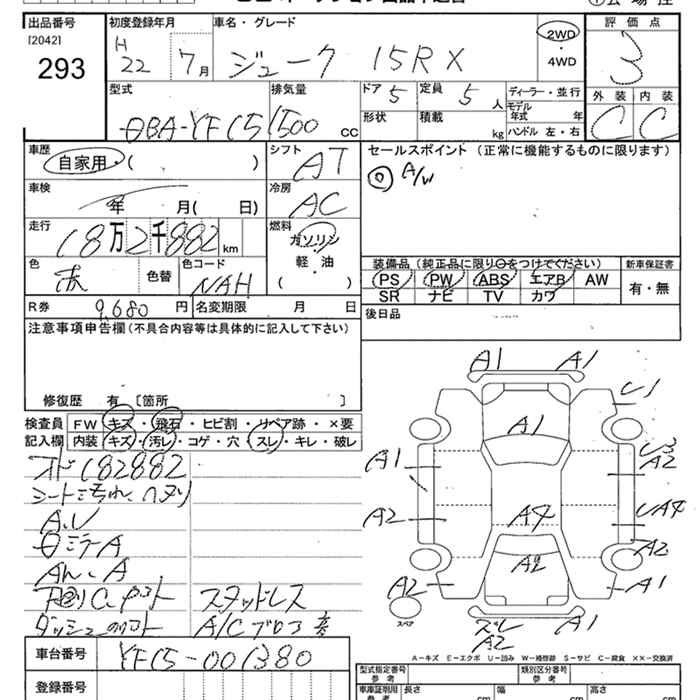 出品番号 初度登録年月 車名・グレード 評価点
[2042] H
293 22 7月 ジューク 15RX 2WD・4WD 3
型式 排気量 ドア 5 定員 5人 ディーラー・並行 外装 内装
DBA-YF15 1500cc 形状 積載 kg モデル年式 年 C C
ハンドル 左・右
車歴 シフト セールスポイント (正常に機能するものに限ります)
自家用・( ) AT ◎ A/W
車検 冷房
年 月( 日) AC
走行 燃料
18万2千882km ガソリン
軽・油
( )
色 色替 色コード 装備品 (純正品に限り○をつけてください) 新車保証書
赤 NAH PS PW ABS エアB AW 有・無
SR ナビ TV カワ
R券 9,680円 名変期限 月 日 後日品
注意事項申告欄(不具合内容等は具体的に記入して下さい)
修復歴 有 [箇所 ]
検査員 FW キズ・飛石・ヒビ割・リペア跡・×要
記入欄 内装 キズ・汚レ・コゲ・穴・スレ・キレ・破レ
182882
シート
A.U
ミラーA
スタッドレス
A/C
車台番号 YF15-001380
登録番号
A1 A1
U1
A1
A1 U3
A2
A2 A4 UA4
A2 A2
A2 A1
スペア スレ A1
A2
A-キズ E-エクボ U-凹み W-補修跡 S-サビ C-腐食 ××-交換済
型式指定番号 類別区分番号
参考 参考
車庫証明用 長さ 幅 高さ
参考 cm cm cm